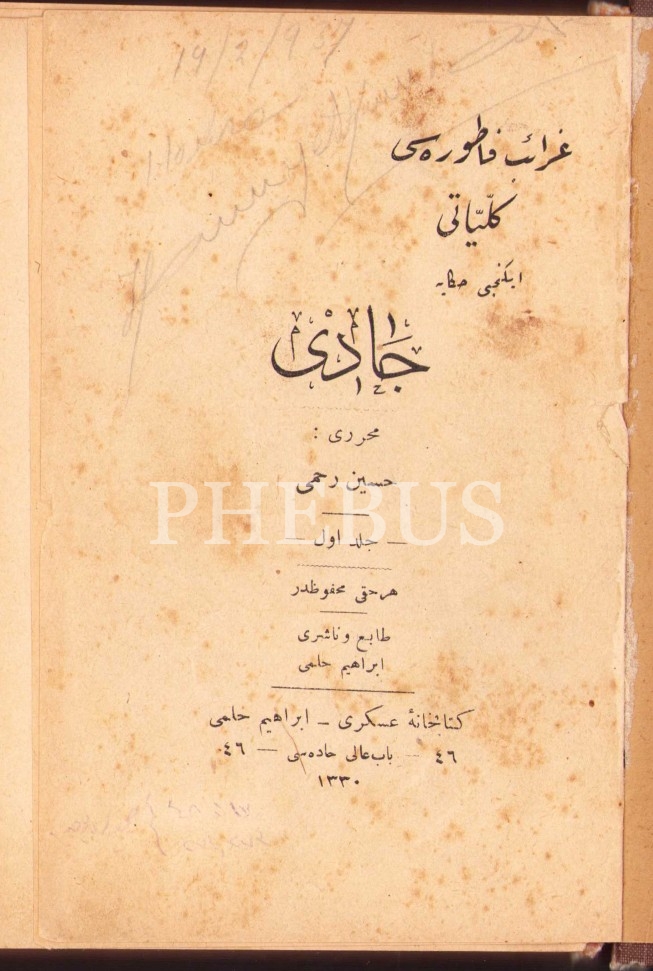 19/2/937
غرائب فاطوره‌سی
كلّيّاتی
ایکنجی حکایه
جادی
محرری :
حسین رحمی
PHEBUS
— جلد اول —
هر حقی محفوظدر
طابع و ناشری
ابراهیم حلمی
کتابخانهٔ عسکری - ابراهیم حلمی
٤٦ — باب عالی جاده‌سی — ٤٦
١٣٣٠